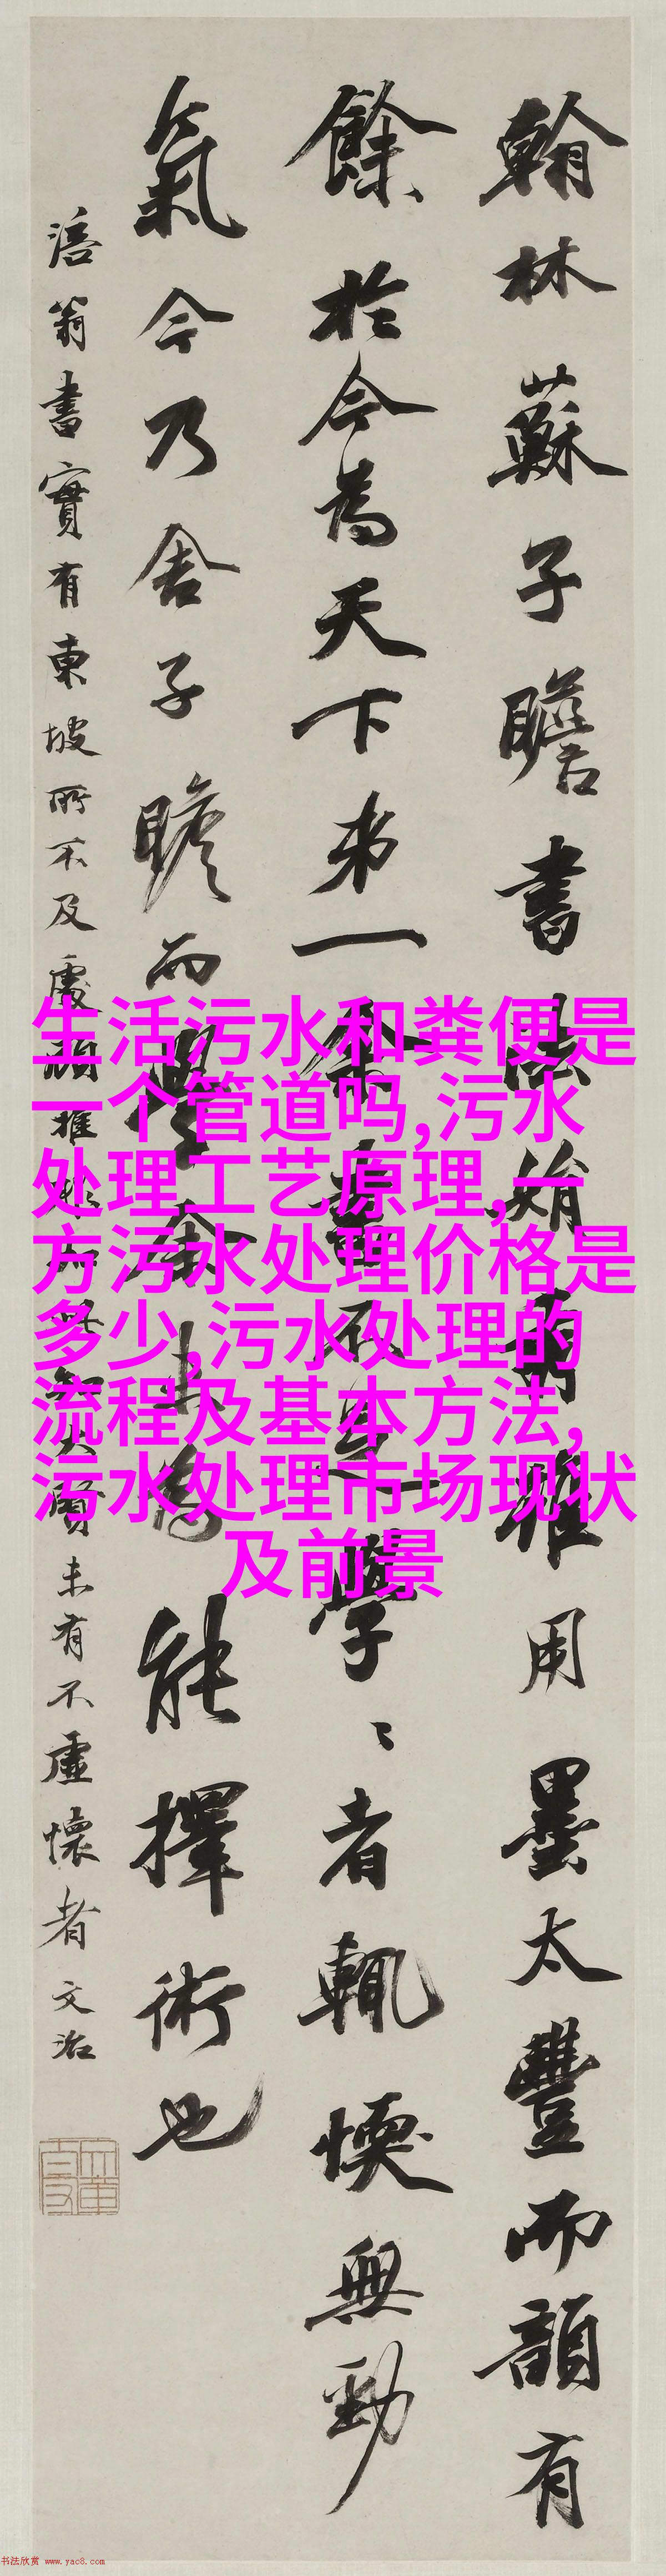 翰林蘇子瞻書法娟秀雖用墨太豐而韻有
餘於今為天下弟一余書不足學〻者輒愞無勁
氣今乃舍子瞻而學余未為能擇術也
涪翁書實有東坡所不及處顧推服如此知大賢未有不虛懷者 文治
生活污水和粪便是
一个管道吗,污水
处理工艺原理,一
方污水处理价格是
多少,污水处理的
流程及基本方法,
污水处理市场现状
及前景
书法欣赏 www.yac8.com